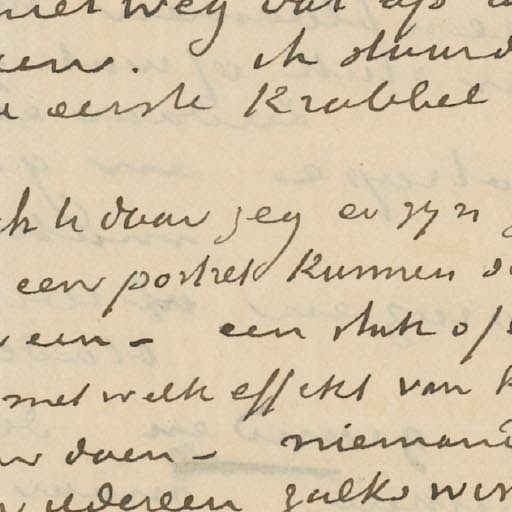 niet weg dat ge
ik stuurd
eerste Krabbel
ik U daar zeg er zyn
een portret kunnen
een – een stuk of
met welk effekt van
doen – niemand
iedereen zulks